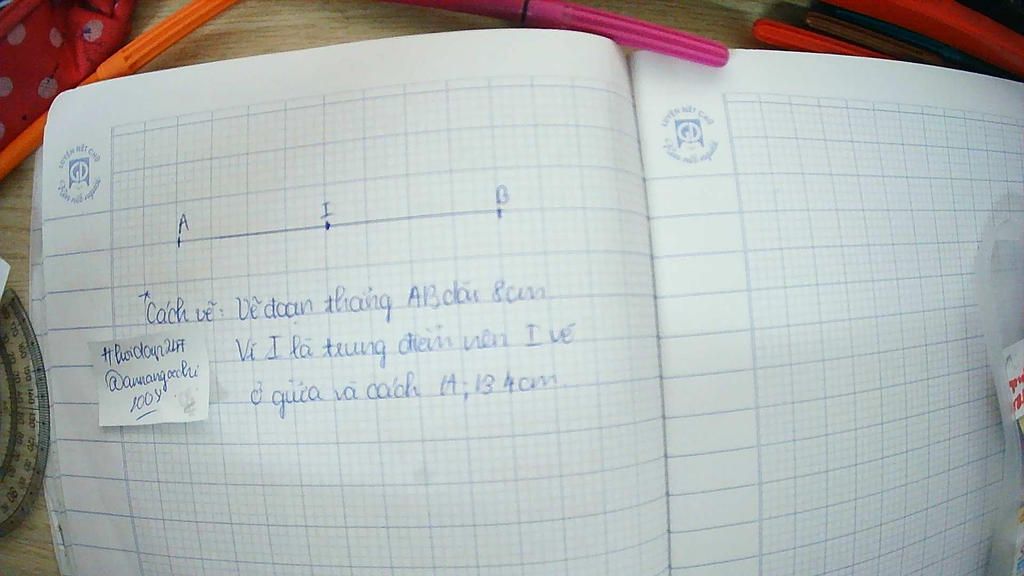 LUYỆN NÉT CHỮ
Rèn nết người
LUYỆN NÉT CHỮ
Rèn nết người
A I B
* Cách vẽ: Vẽ đoạn thẳng AB dài 8cm
Vì I là trung điểm nên I vẽ
ở giữa và cách A; B 4cm.
#hoidap247
@annangocchi
2009